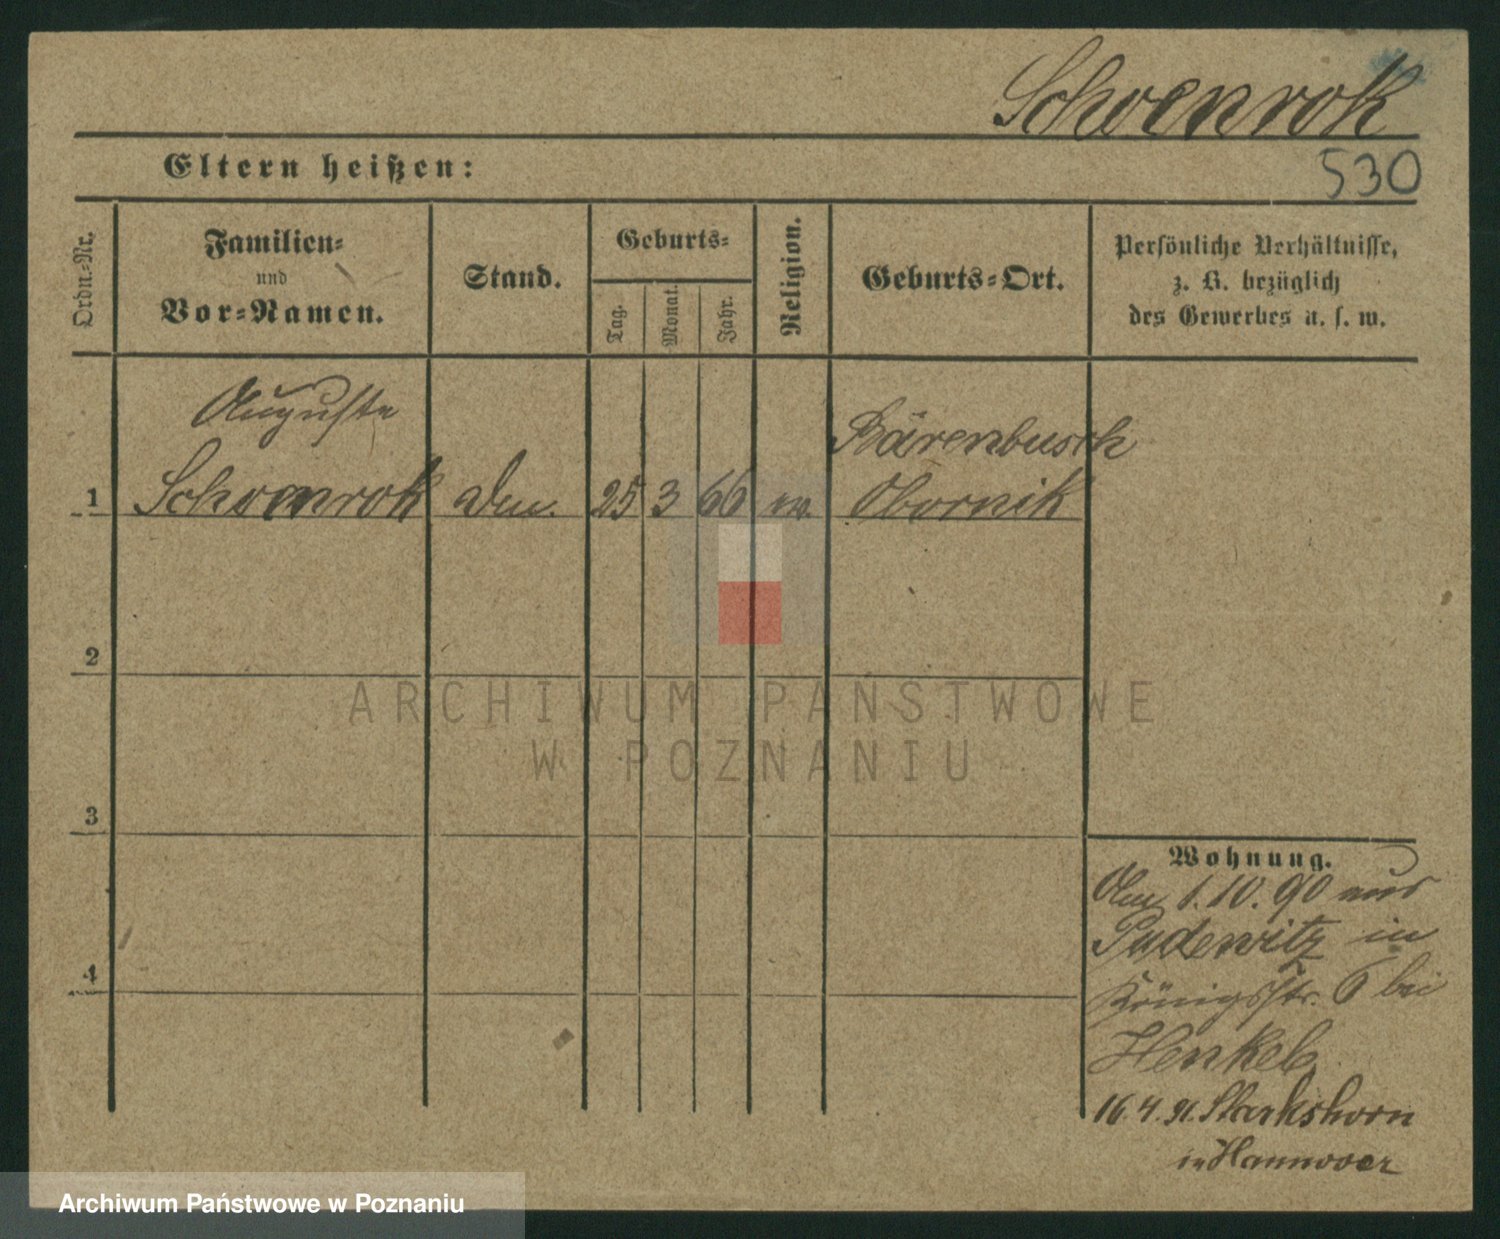 Schoenrok
Eltern heißen:
530
Ordn.-Nr.
Familien-
und
Vor-Namen.
Stand.
Geburts-
Tag.
Monat.
Jahr.
Religion.
Geburts-Ort.
Persönliche Verhältnisse,
z. B. bezüglich
des Gewerbes u. s. w.
Auguste
Bärenbusch
1 Schoenrok 25 3 66 Obornik
2
3
4
Wohnung.
1. 10. 90 aus
Pudewitz in
Königsstr. 6 bei
Henkel
16. 4. 91. Starkshorn
in Hannover
ARCHIWUM PAŃSTWOWE
W POZNANIU
Archiwum Państwowe w Poznaniu